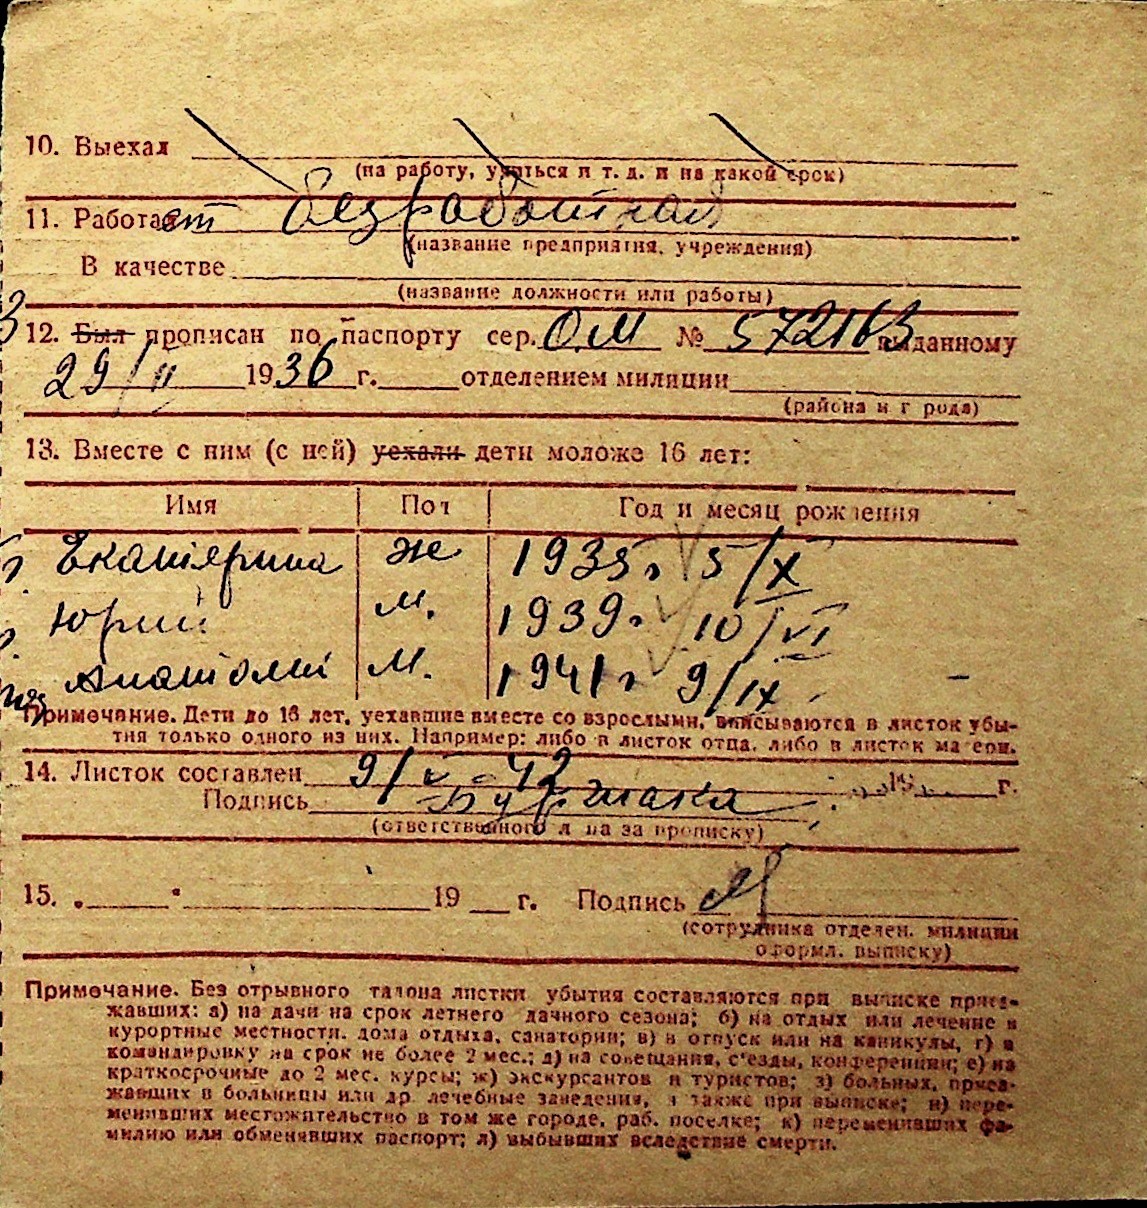 10. Выехал
(на работу, учиться и т. д. и на какой срок)
11. Работает безработная
(название предприятия, учреждения)
В качестве
(название должности или работы)
12. Был прописан по паспорту сер. О.М № 572163 выданному
29/II 1936 г. отделением милиции
(района и города)
13. Вместе с ним (с ней) уехали дети моложе 16 лет:
Имя Пол Год и месяц рождения
Екатерина ж 1935г 5/X
Юрий м. 1939г. 10/VI
Анатолий м. 1941г 9/IX
Примечание. Дети до 16 лет, уехавшие вместе со взрослыми, вписываются в листок убы-
тия только одного из них. Например: либо в листок отца, либо в листок матери.
14. Листок составлен 9/V-42 19 г.
Подпись
(ответственного лица за прописку)
15. „ " 19 г. Подпись
(сотрудника отделен. милиции
оформл. выписку)
Примечание. Без отрывного талона листки убытия составляются при выписке приез-
жавших: а) на дачи на срок летнего дачного сезона; б) на отдых или лечение в
курортные местности, дома отдыха, санатории; в) в отпуск или на каникулы, г) в
командировку на срок не более 2 мес.; д) на совещания, с'езды, конференции; е) на
краткосрочные до 2 мес. курсы; ж) экскурсантов и туристов; з) больных, приез-
жавших в больницы или др лечебные заведения, а также при выписке; и) пере-
менивших местожительство в том же городе, раб. поселке; к) переменивших фа-
милию или обменявших паспорт; л) выбывших вследствие смерти.